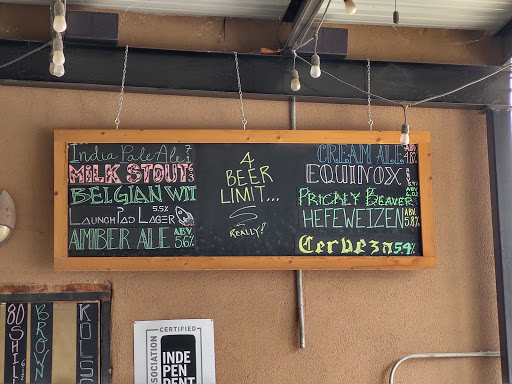 India Pale Ale
MILK STOUT
BELGIAN WIT
LAUNCH PAD LAGER 5.5%
AMBER ALE ABV 5.6%
4
BEER
LIMIT...
REALLY!
CREAM ALE ABV 4.8%
EQUINOX
PRICKLY BEAVER ABV
HEFEWEIZEN ABV 5.8%
Cerveza 5.4%
80 SHIL
BROWN
KOLS
CERTIFIED
INDE
PEN
DENT